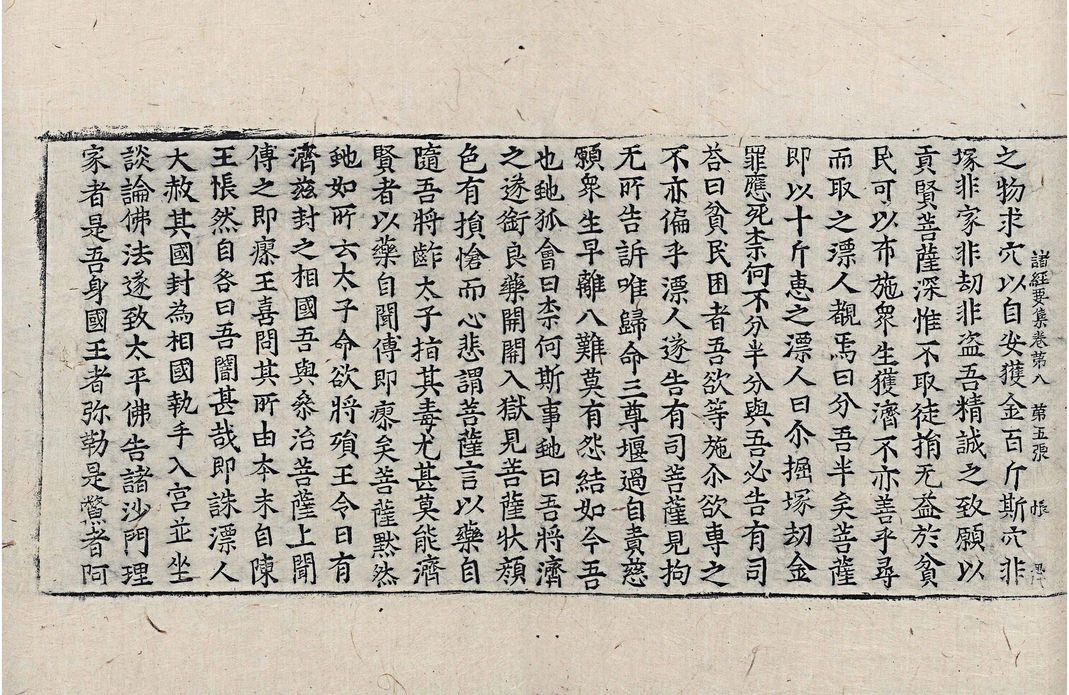 諸経要集卷第八　第五張　帳
之物求穴以自安獲金百斤斯穴非
塚非家非劫非盗吾精誠之致願以
貢賢菩薩深惟不取徒捐无益於貧
民可以布施衆生獲濟不亦善乎尋
而取之漂人覩焉曰分吾半矣菩薩
即以十斤恵之漂人曰尒掘塚劫金
罪應死柰何不分半分與吾必告有司
荅曰貧民困者吾欲等施尒欲専之
不亦偏乎漂人遂告有司菩薩見拘
无所告訴唯歸命三尊堰過自責慈
願衆生早離八難莫有怨結如今吾
也虵狐會曰柰何斯事虵曰吾將濟
之遂銜良藥開開入獄見菩薩状顔
色有損愴而心悲謂菩薩言以藥自
隨吾將齚太子指其毒尤甚莫能濟
賢者以藥自聞傅即瘳矣菩薩黙然
虵如所云太子命欲將殞王令曰有
濟兹封之相國吾與叅治菩薩上聞
傅之即瘳王喜問其所由本末自陳
王悵然自咎曰吾闇甚哉即誅漂人
大赦其國封為相國執手入宫並坐
談論佛法遂致太平佛告諸沙門理
家者是吾身國王者弥勒是鼈者阿